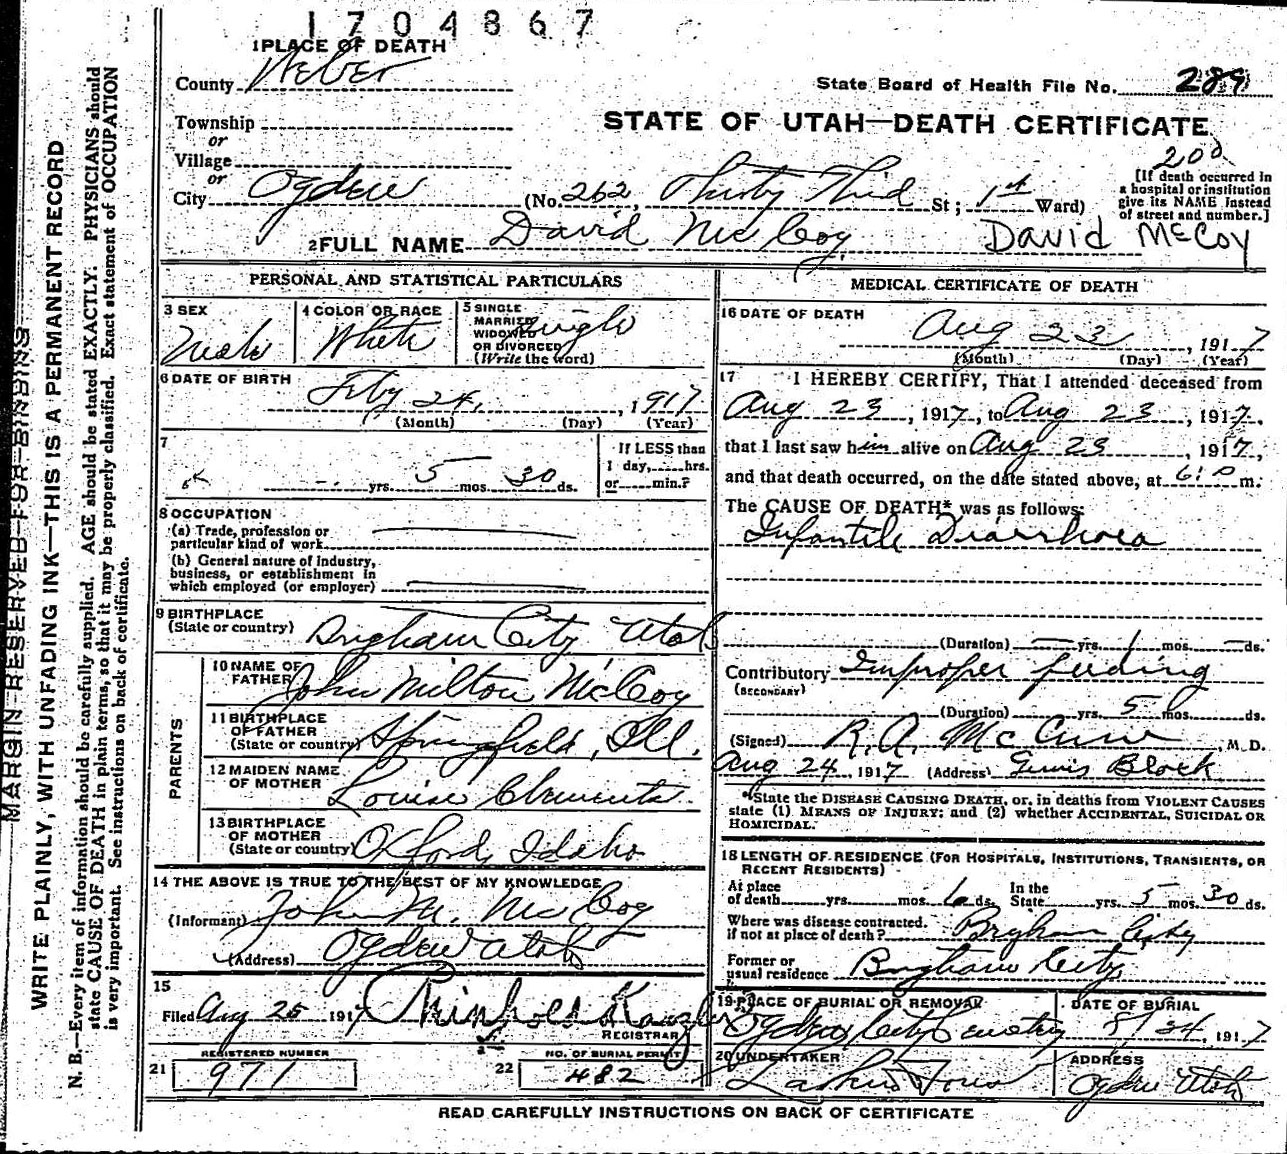 1704867
1 PLACE OF DEATH
County Weber
State Board of Health File No. 289
Township
STATE OF UTAH—DEATH CERTIFICATE
or
Village
or
City Ogden (No. 262, Thirty Third St; 1st Ward)
200
[If death occurred in
a hospital or institution
give its NAME instead
of street and number.]
2 FULL NAME David McCoy David McCoy
PERSONAL AND STATISTICAL PARTICULARS
3 SEX Male
4 COLOR OR RACE White
5 SINGLE
MARRIED
WIDOWED
OR DIVORCED
(Write the word) Single
6 DATE OF BIRTH Feby 24, 1917
(Month) (Day) (Year)
7 yrs. 5 mos. 30 ds.
If LESS than
1 day, hrs.
or min.?
8 OCCUPATION
(a) Trade, profession or
particular kind of work
(b) General nature of industry,
business, or establishment in
which employed (or employer)
9 BIRTHPLACE
(State or country) Brigham City Utah
PARENTS
10 NAME OF
FATHER John Milton McCoy
11 BIRTHPLACE
OF FATHER
(State or country) Springfield, Ill.
12 MAIDEN NAME
OF MOTHER Louise Clements
13 BIRTHPLACE
OF MOTHER
(State or country) Oxford, Idaho
14 THE ABOVE IS TRUE TO THE BEST OF MY KNOWLEDGE
(Informant) John M. McCoy
(Address) Ogden Utah
15
Filed Aug 25 1917
REGISTRAR
REGISTERED NUMBER
21 971
NO. OF BURIAL PERMIT
22 482
MEDICAL CERTIFICATE OF DEATH
16 DATE OF DEATH
Aug 23, 1917
(Month) (Day) (Year)
17 I HEREBY CERTIFY, That I attended deceased from
Aug 23, 1917, to Aug 23, 1917,
that I last saw him alive on Aug 23, 1917,
and that death occurred, on the date stated above, at m.
The CAUSE OF DEATH* was as follows:
Infantile Diarrhoea
(Duration) — yrs. 1 mos. — ds.
Contributory Improper feeding
(SECONDARY)
(Duration) yrs. 5 mos. ds.
(Signed) R. A. M. D.
Aug 24, 1917 (Address) Block
*State the DISEASE CAUSING DEATH, or, in deaths from VIOLENT CAUSES
state (1) MEANS OF INJURY; and (2) whether ACCIDENTAL, SUICIDAL OR
HOMICIDAL.
18 LENGTH OF RESIDENCE (FOR HOSPITALS, INSTITUTIONS, TRANSIENTS, OR
RECENT RESIDENTS)
At place
of death yrs. mos. ds. In the
State yrs. 5 mos. 30 ds.
Where was disease contracted,
if not at place of death? Brigham City
Former or
usual residence Brigham City
19 PLACE OF BURIAL OR REMOVAL
Ogden City Cemetery
DATE OF BURIAL
8/24, 1917
20 UNDERTAKER
Larkin & Sons
ADDRESS
Ogden Utah
READ CAREFULLY INSTRUCTIONS ON BACK OF CERTIFICATE
MARGIN RESERVED FOR BINDING
WRITE PLAINLY, WITH UNFADING INK—THIS IS A PERMANENT RECORD
N. B.—Every item of information should be carefully supplied. AGE should be stated EXACTLY. PHYSICIANS should
state CAUSE OF DEATH in plain terms, so that it may be properly classified. Exact statement of OCCUPATION
is very important. See instructions on back of certificate.